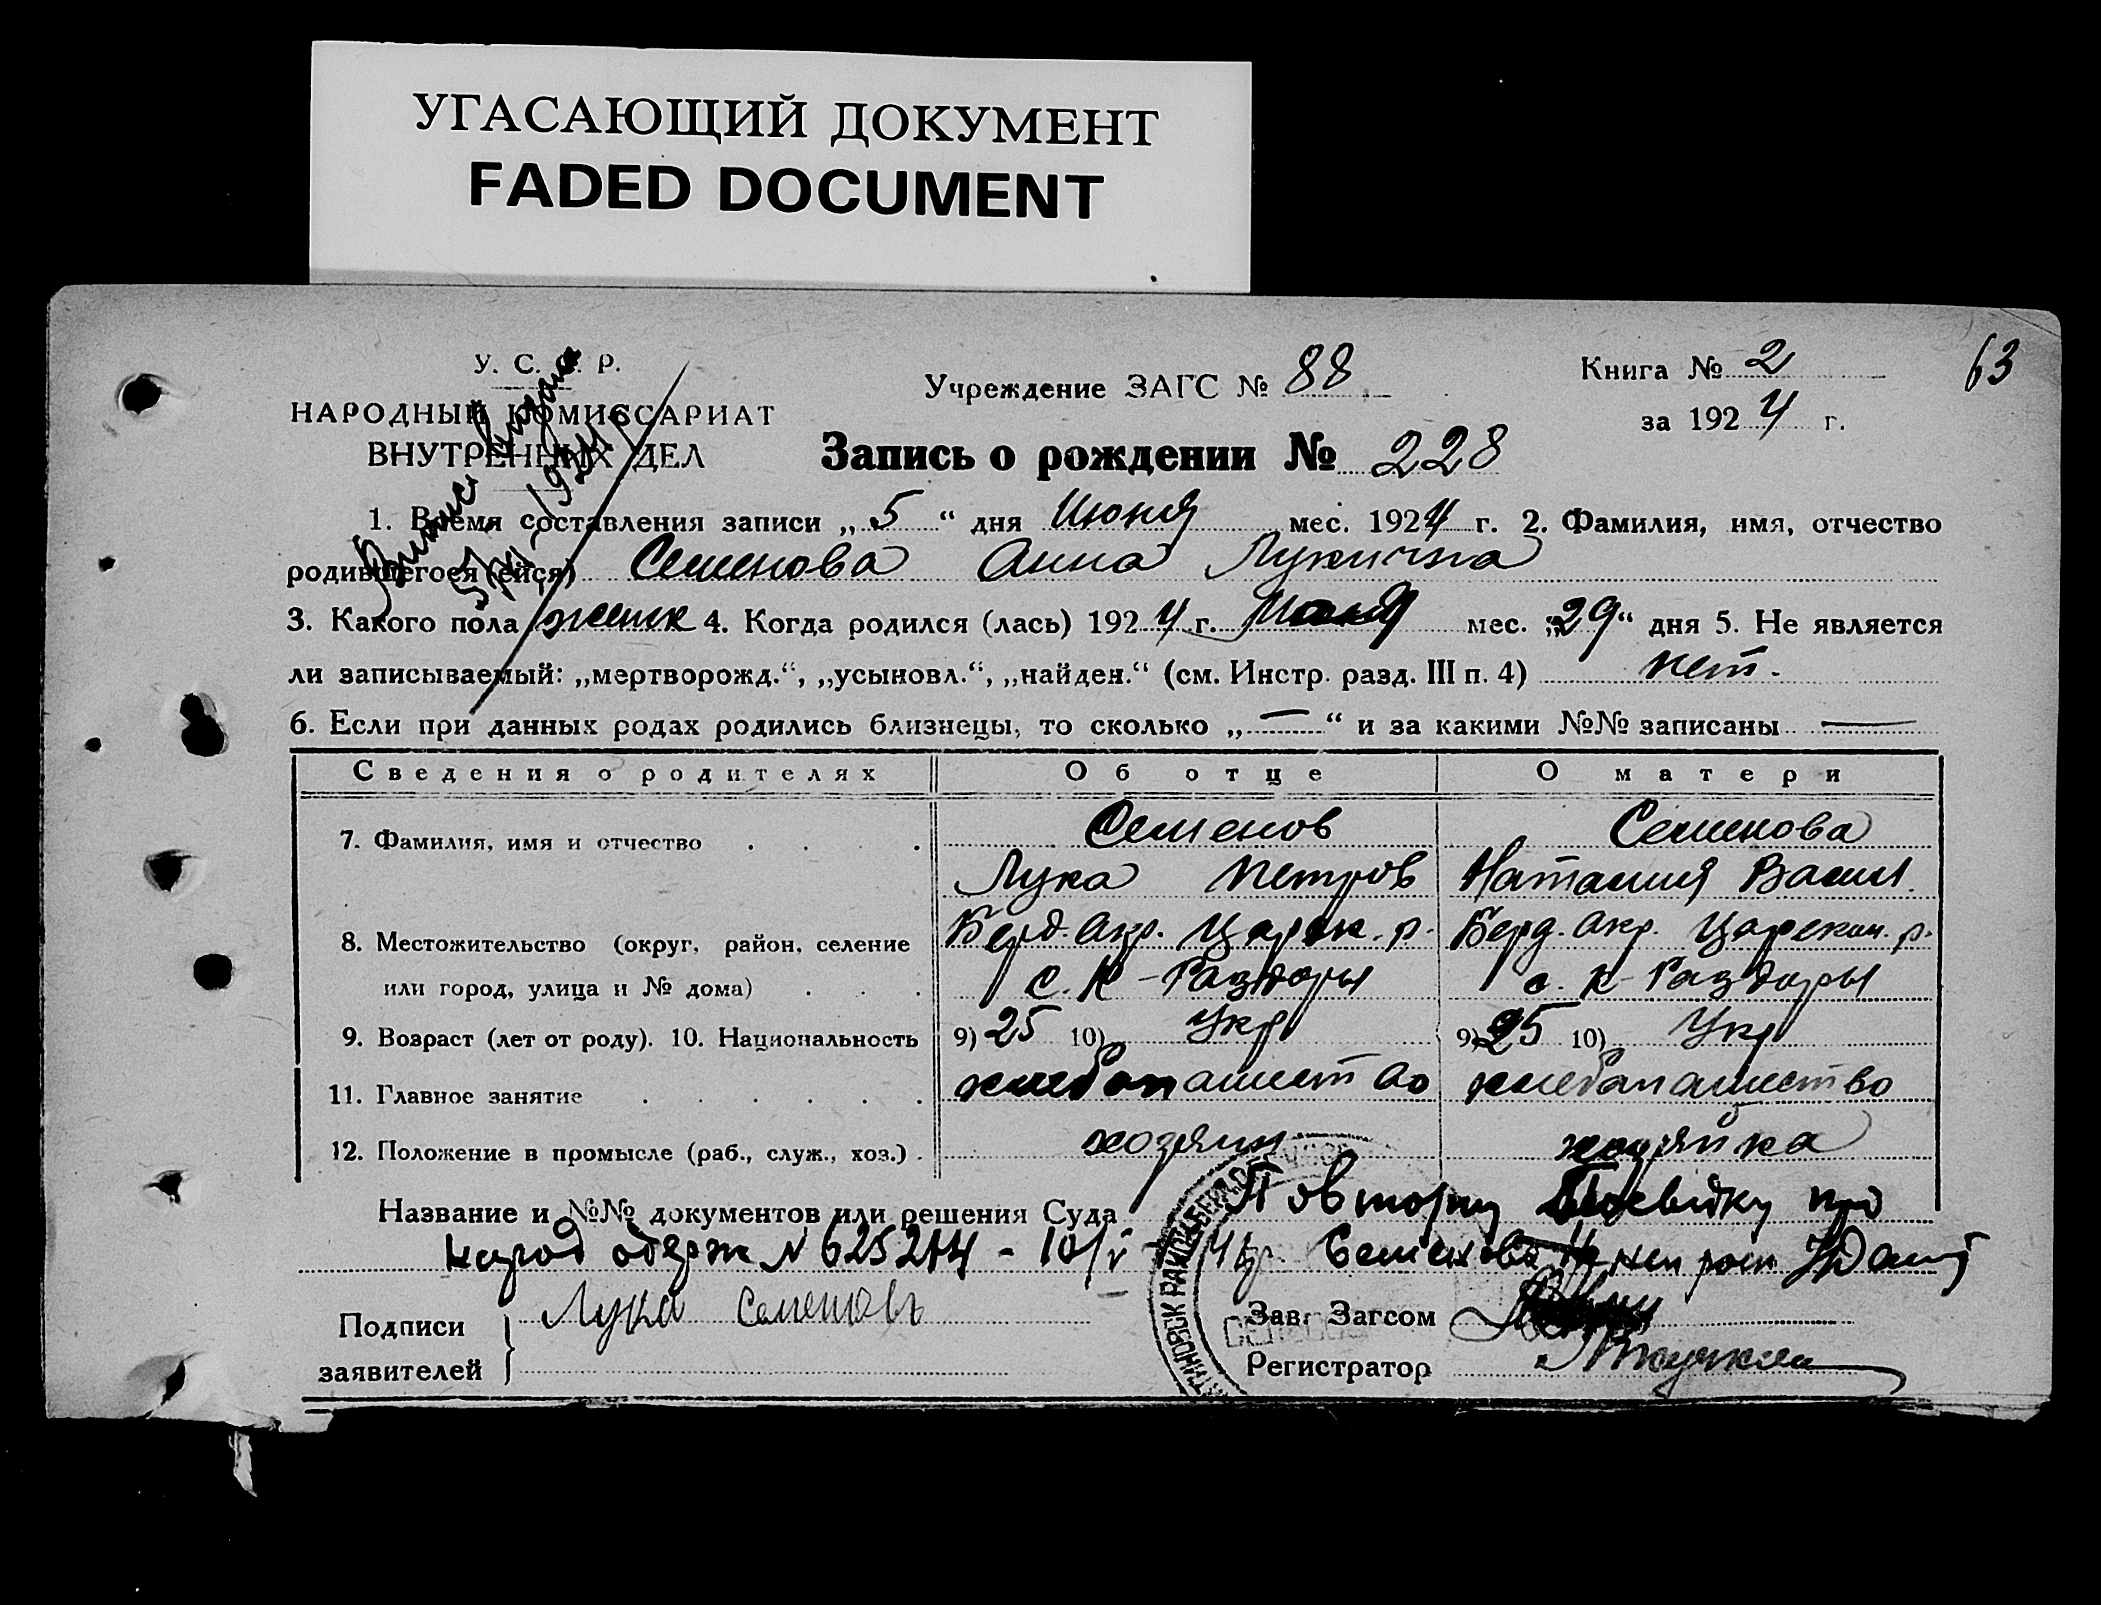 УГАСАЮЩИЙ ДОКУМЕНТ
FADED DOCUMENT
63
У. С. С. Р.
НАРОДНЫЙ КОМИССАРИАТ
ВНУТРЕННИХ ДЕЛ
Учреждение ЗАГС № 88
Книга № 2
за 1924 г.
Запись о рождении № 228
1. Время составления записи „ 5 “ дня Июня мес. 1924 г. 2. Фамилия, имя, отчество
родившегося (ейся) Семенова Анна Лукична
3. Какого пола женск 4. Когда родился (лась) 1924 г. мес. „29“ дня 5. Не является
ли записываемый: „мертворожд.“, „усыновл.“, „найден.“ (см. Инстр. разд. III п. 4) нет.
6. Если при данных родах родились близнецы, то сколько „—“ и за какими №№ записаны —
Сведения о родителях Об отце О матери
7. Фамилия, имя и отчество Семенов Семенова
Лука Петров Наталия Васил.
8. Местожительство (округ, район, селение Берд. окр. Царек. р. Берд. окр. Царекон. р.
или город, улица и № дома) с. К-Раздоры с. К-Раздоры
9. Возраст (лет от роду). 10. Национальность 9) 25 10) Укр 9) 25 10) Укр
11. Главное занятие хлебопашество хлебопашество
12. Положение в промысле (раб., служ., хоз.) хозяин хозяйка
Название и №№ документов или решения Суда Повторну про
народ одерж № Семенова
Подписи заявителей Лука Семеновъ
Зав. Загсом
Регистратор